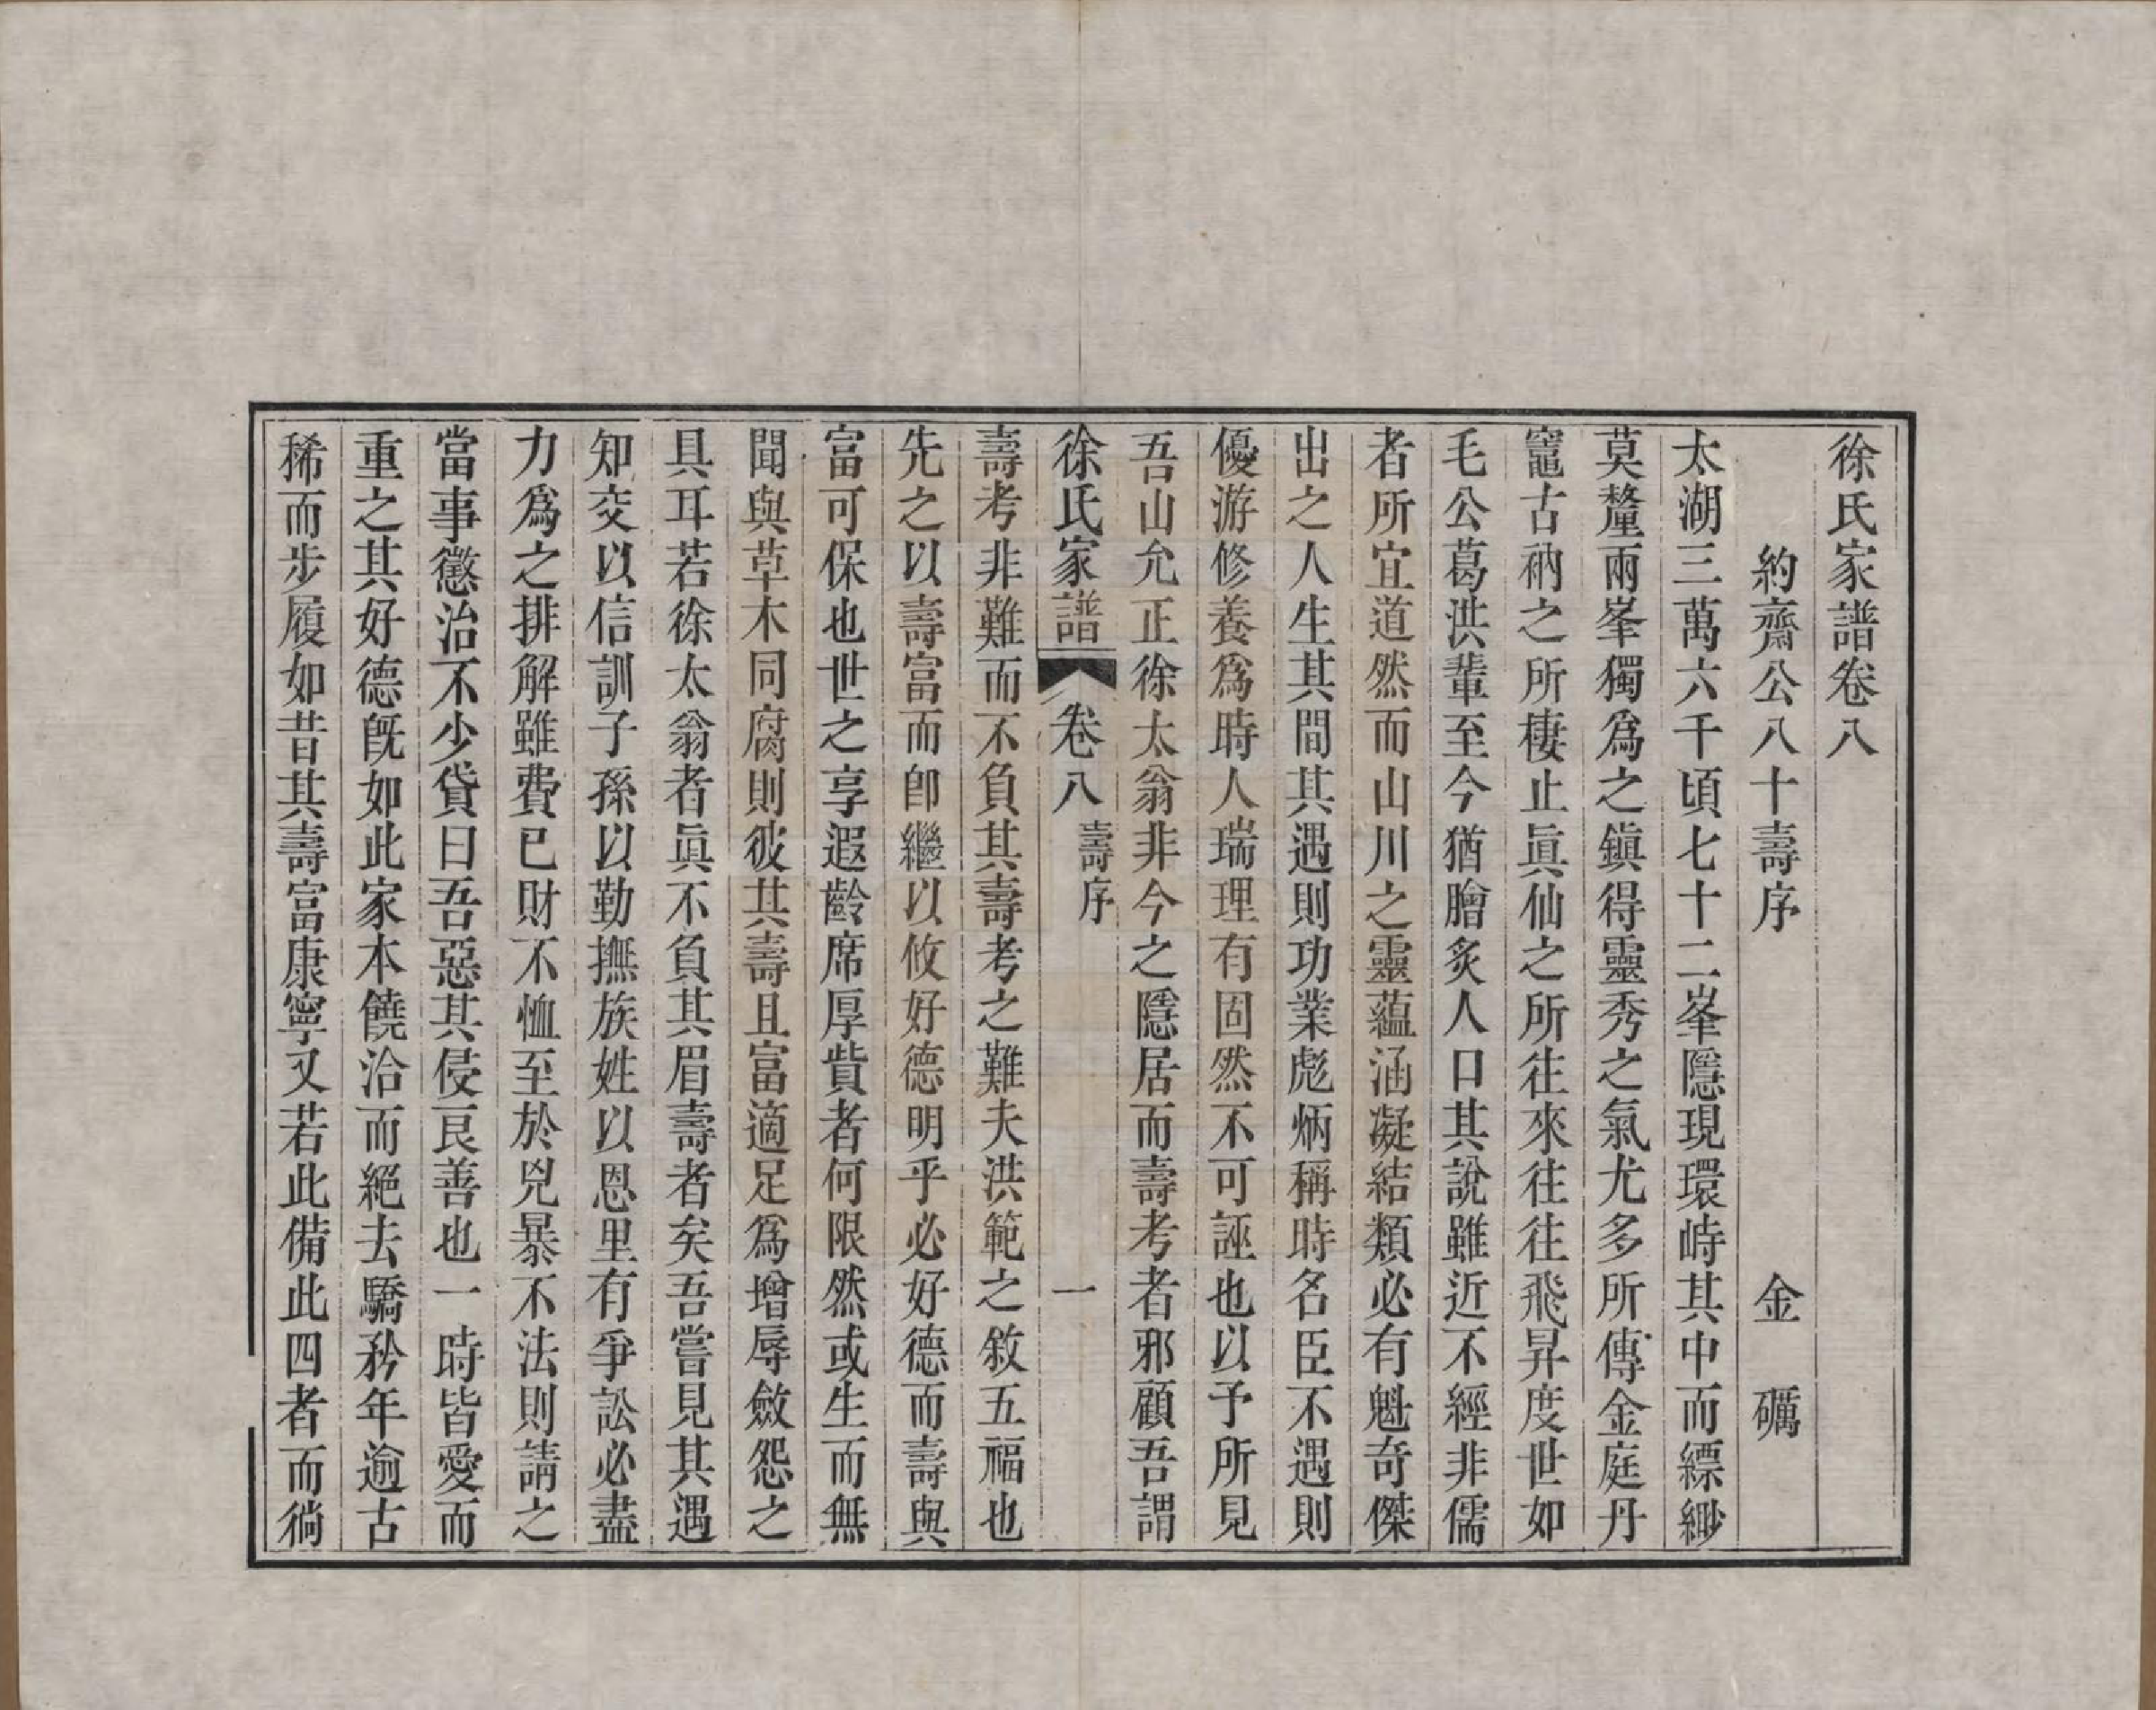 徐氏家譜卷八
約齋公八十壽序　金　礪
太湖三萬六千頃七十二峯隱現環峙其中而縹緲
莫釐兩峯獨爲之鎭得靈秀之氣尤多所傳金庭丹
竈古衲之所棲止眞仙之所往來往往飛昇度世如
毛公葛洪輩至今猶膾炙人口其說雖近不經非儒
者所宜道然而山川之靈蘊涵凝結類必有魁奇傑
出之人生其間其遇則功業彪炳稱時名臣不遇則
優游修養爲時人瑞理有固然不可誣也以予所見
吾山允正徐太翁非今之隱居而壽考者邪顧吾謂
徐氏家譜　卷八　壽序　一
壽考非難而不負其壽考之難夫洪範之敘五福也
先之以壽富而卽繼以攸好德明乎必好德而壽與
富可保也世之享遐齡席厚貲者何限然或生而無
聞與草木同腐則彼其壽且富適足爲增辱斂怨之
具耳若徐太翁者眞不負其眉壽者矣吾嘗見其遇
知交以信訓子孫以勤撫族姓以恩里有爭訟必盡
力爲之排解雖費已財不恤至於兇暴不法則請之
當事懲治不少貸曰吾惡其侵良善也一時皆愛而
重之其好德旣如此家本饒洽而絕去驕矜年逾古
稀而步履如昔其壽富康寧又若此備此四者而徜